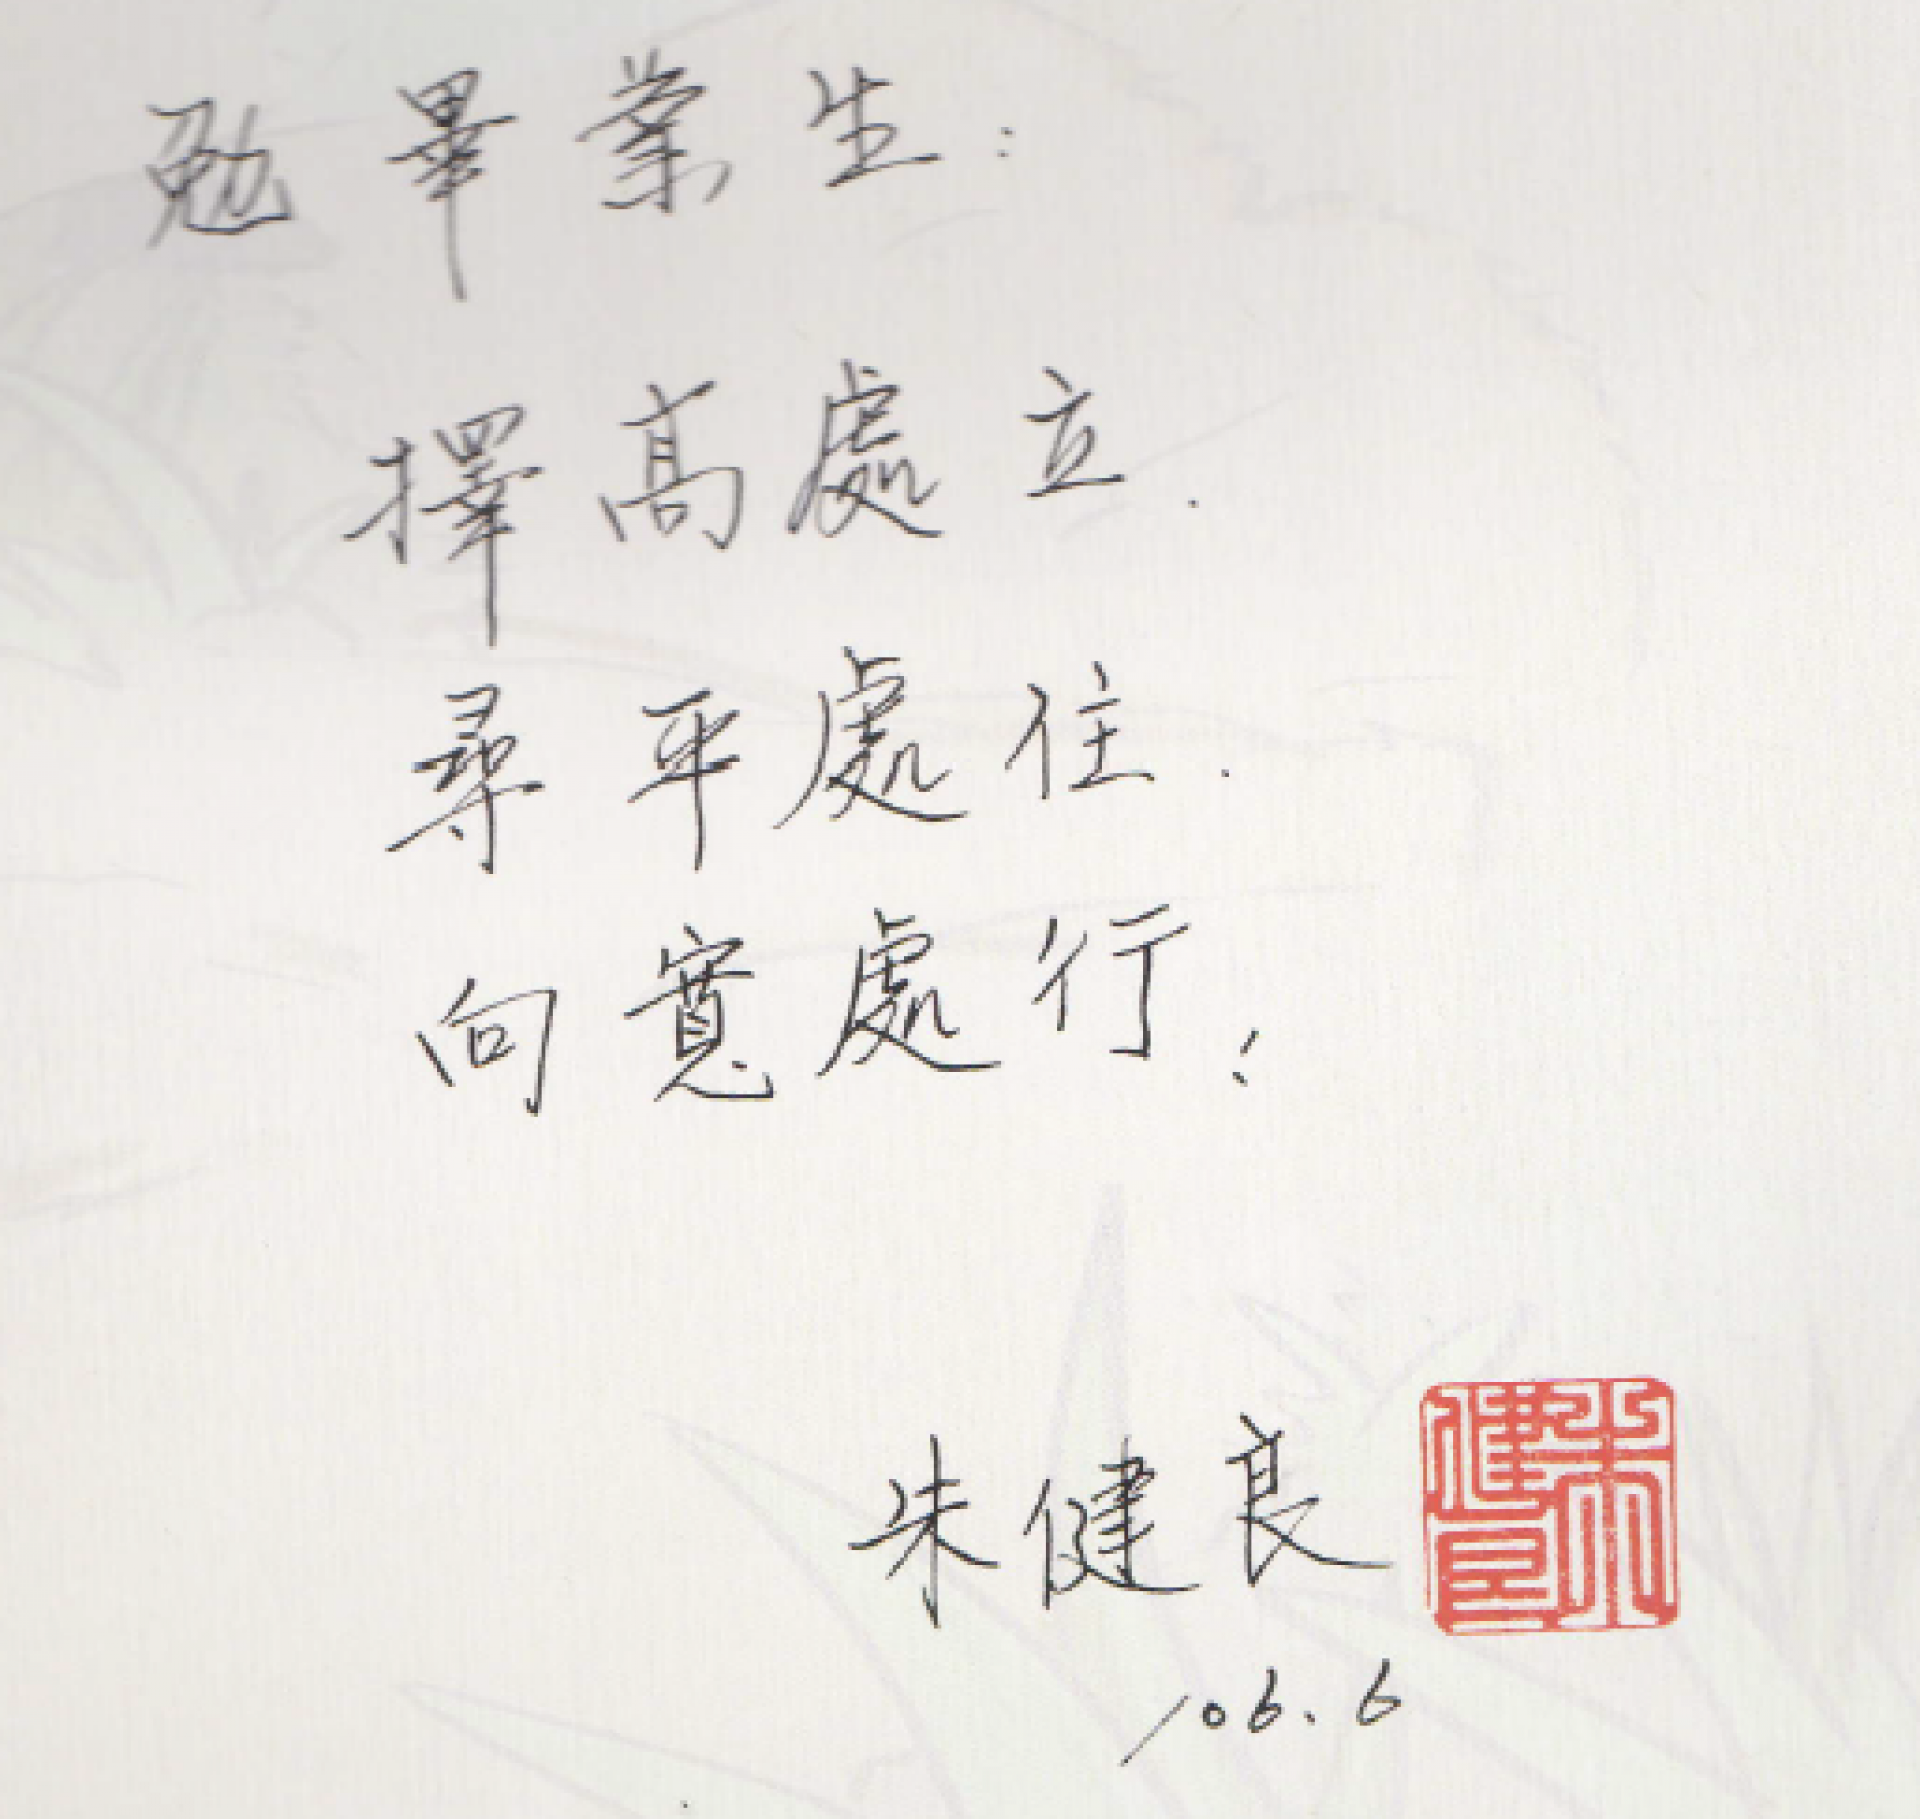 勉畢業生:
擇高處立.
尋平處住.
向寬處行!
朱健良
朱健良
106.6